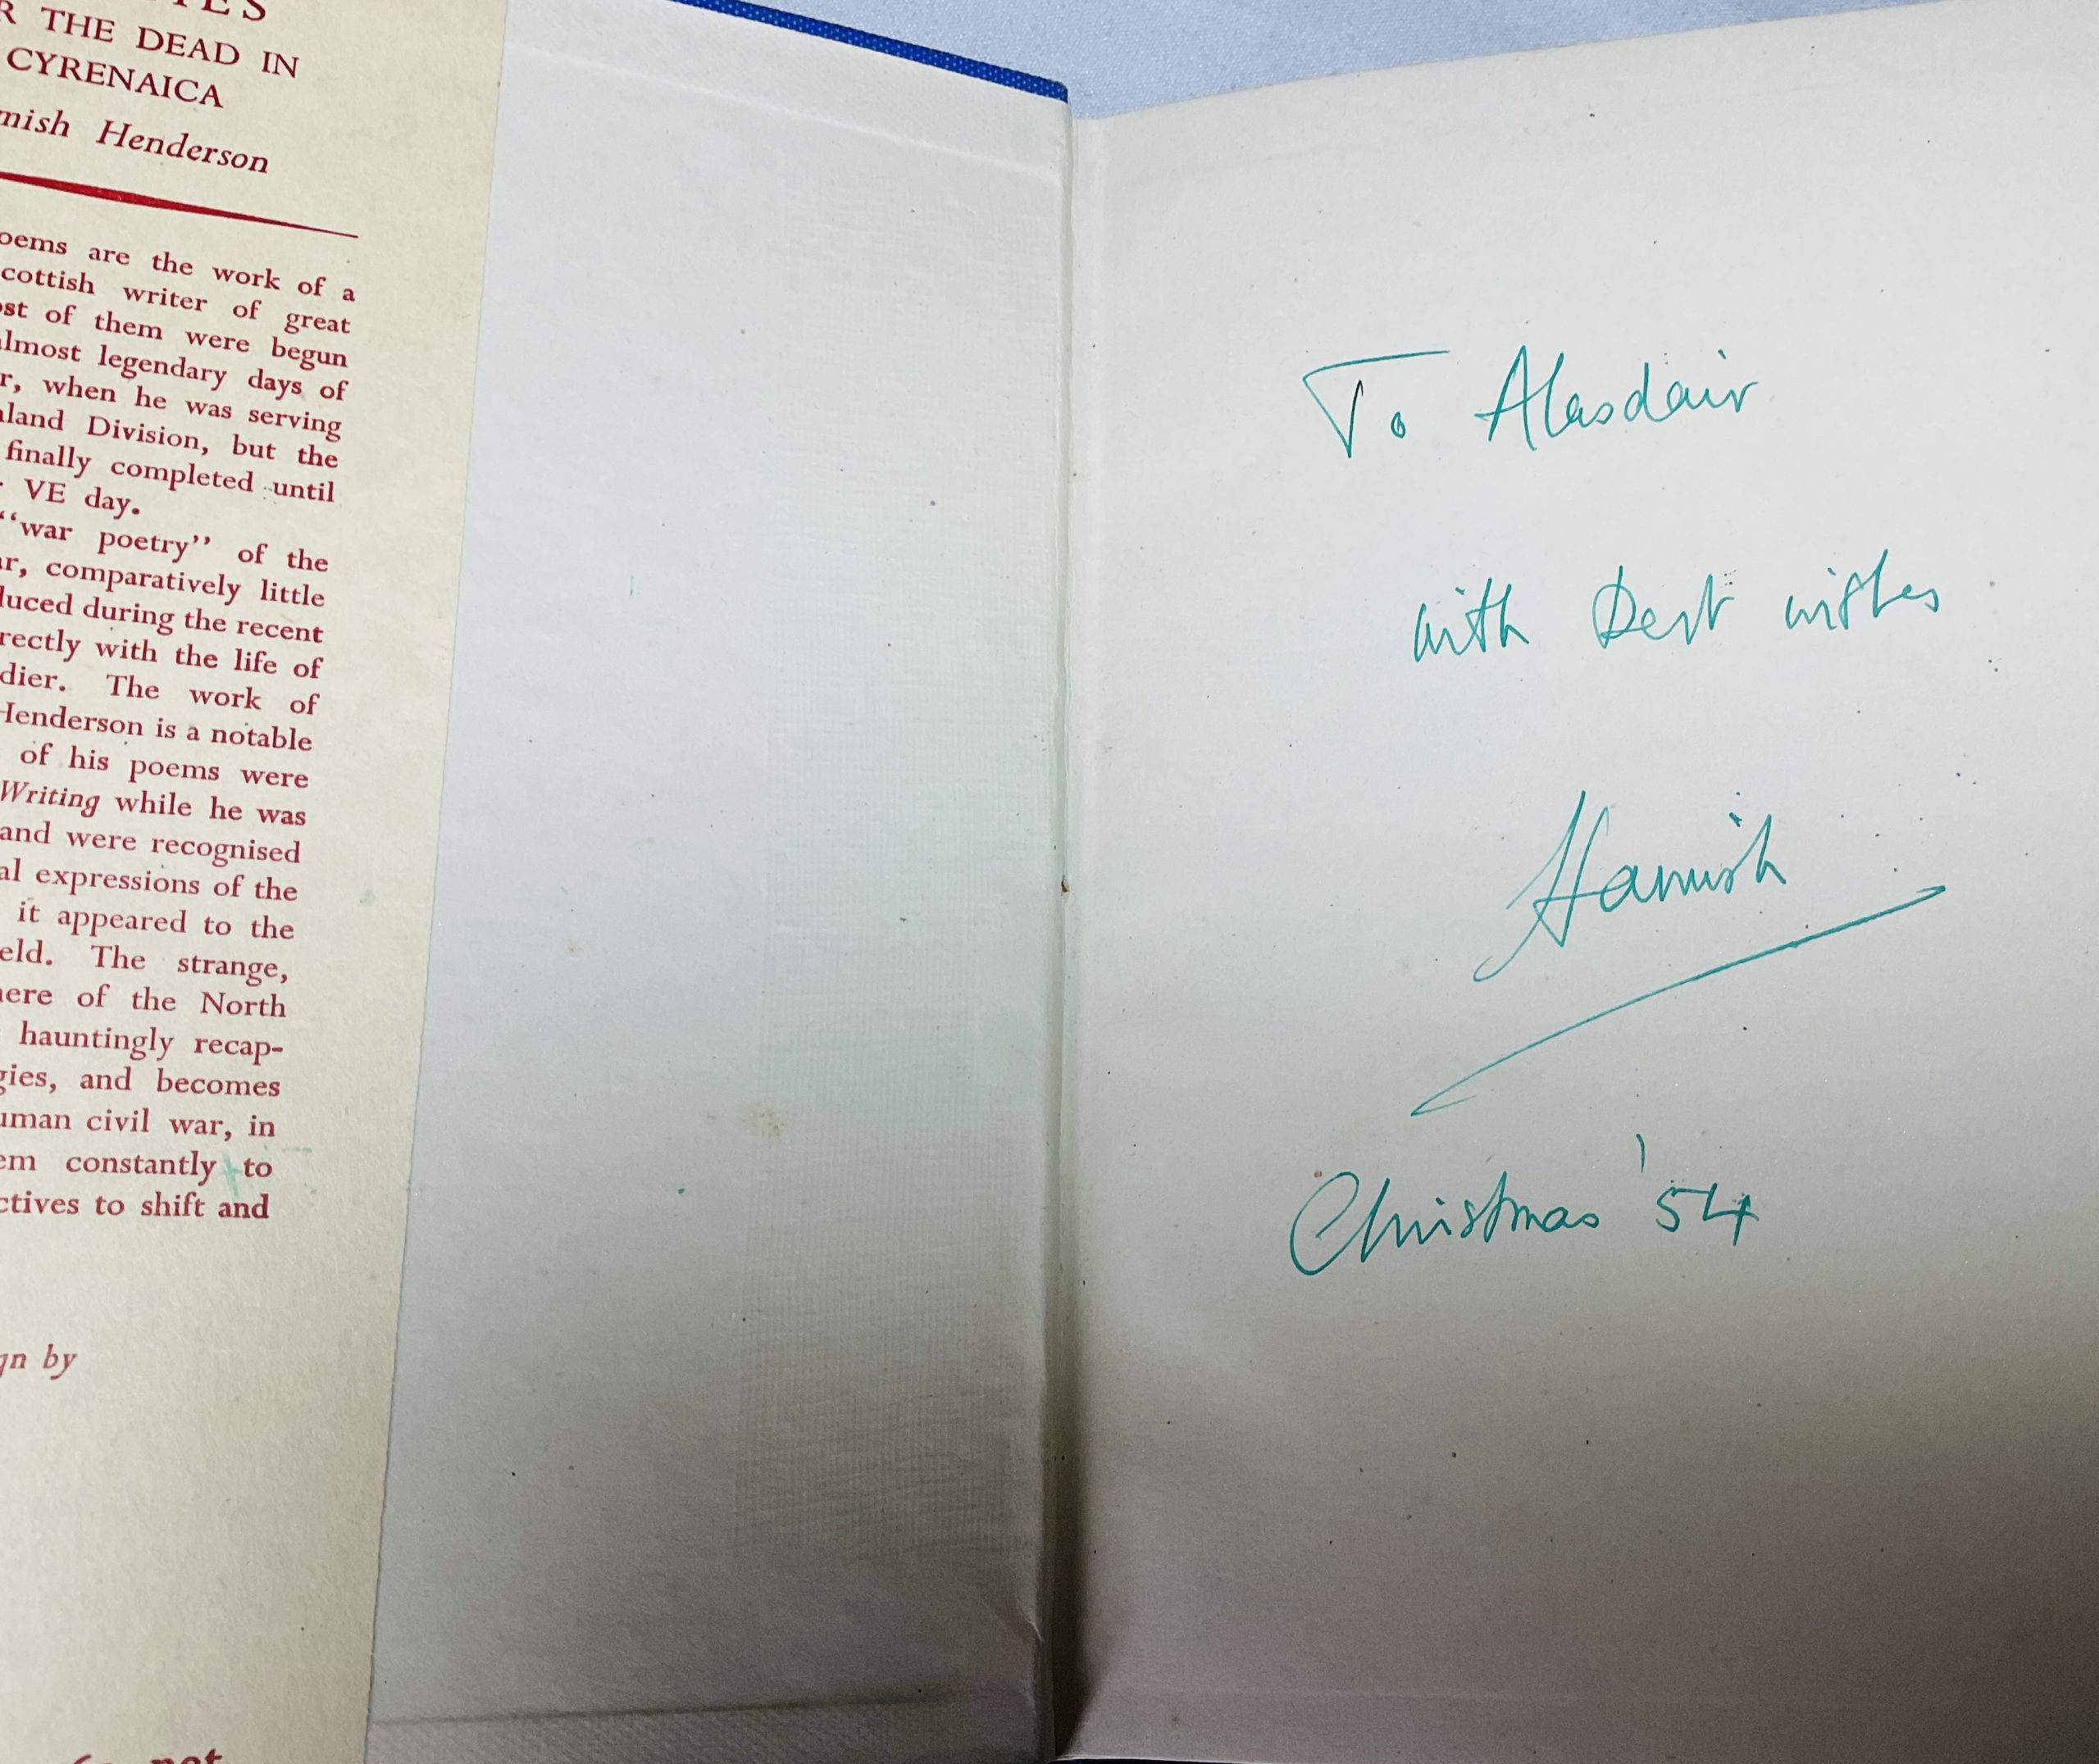 THE DEAD IN
CYRENAICA
Henderson
are the work of a
writer of great
of them were begun
legendary days of
when he was serving
Division, but the
finally completed until
VE day.
“war poetry” of the
comparatively little
during the recent
with the life of
The work of
Henderson is a notable
of his poems were
Writing while he was
and were recognised
expressions of the
it appeared to the
The strange,
of the North
hauntingly recap-
and becomes
civil war, in
constantly to
to shift and
by
not
To Alasdair
with Best wishes
Hamish
Christmas '54